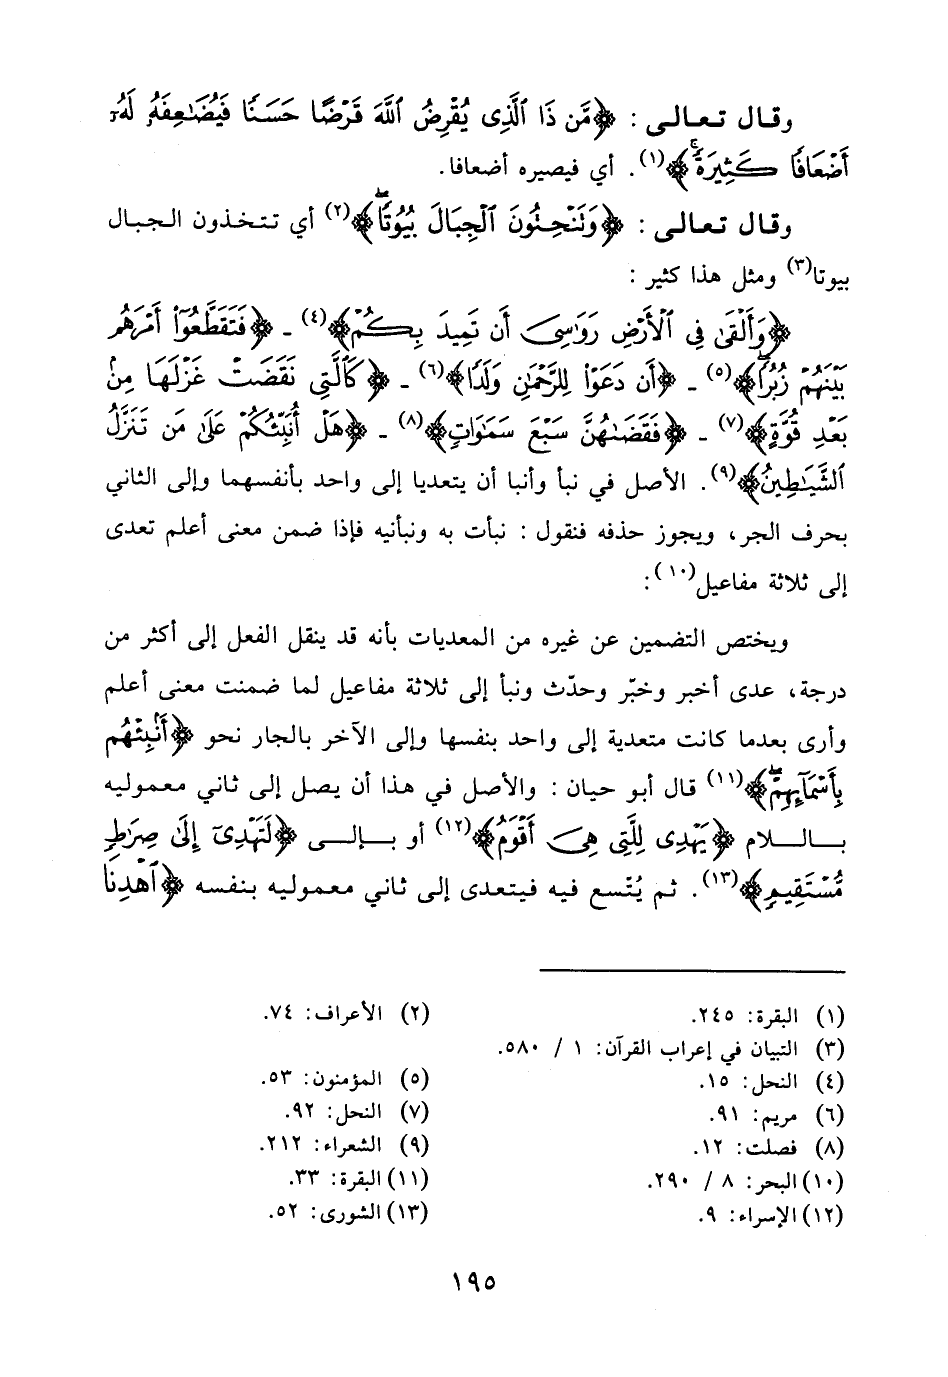 وقال تعالى : ﴿مَّن ذَا ٱلَّذِى يُقْرِضُ ٱللَّهَ قَرْضًا حَسَنًا فَيُضَٰعِفَهُۥ لَهُۥٓ
أَضْعَافًا كَثِيرَةً﴾(١). أي فيصيره أضعافا.
وقال تعالى : ﴿وَتَنْحِتُونَ ٱلْجِبَالَ بُيُوتًا﴾(٢) أي تتخذون الجبال
بيوتا(٣) ومثل هذا كثير :
﴿وَأَلْقَىٰ فِى ٱلْأَرْضِ رَوَٰسِىَ أَن تَمِيدَ بِكُمْ﴾(٤) ـ ﴿فَتَقَطَّعُوٓا۟ أَمْرَهُم
بَيْنَهُمْ زُبُرًا﴾(٥) ـ ﴿أَن دَعَوْا۟ لِلرَّحْمَٰنِ وَلَدًا﴾(٦) ـ ﴿كَٱلَّتِى نَقَضَتْ غَزْلَهَا مِنۢ
بَعْدِ قُوَّةٍ﴾(٧) ـ ﴿فَقَضَىٰهُنَّ سَبْعَ سَمَٰوَاتٍ﴾(٨) ـ ﴿هَلْ أُنَبِّئُكُمْ عَلَىٰ مَن تَنَزَّلُ
ٱلشَّيَٰطِينُ﴾(٩). الأصل في نبأ وأنبا أن يتعديا إلى واحد بأنفسهما وإلى الثاني
بحرف الجر، ويجوز حذفه فنقول : نبأت به ونبأنيه فإذا ضمن معنى أعلم تعدى
إلى ثلاثة مفاعيل(١٠):
ويختص التضمين عن غيره من المعديات بأنه قد ينقل الفعل إلى أكثر من
درجة، عدى أخبر وخبّر وحدّث ونبأ إلى ثلاثة مفاعيل لما ضمنت معنى أعلم
وأرى بعدما كانت متعدية إلى واحد بنفسها وإلى الآخر بالجار نحو ﴿أَنۢبِئْهُم
بِأَسْمَآئِهِمْ﴾(١١) قال أبو حيان : والأصل في هذا أن يصل إلى ثاني معموليه
بــالــلام ﴿يَهْدِى لِلَّتِى هِىَ أَقْوَمُ﴾(١٢) أو بــإلــى ﴿لَتَهْدِىٓ إِلَىٰ صِرَٰطٍ
مُّسْتَقِيمٍ﴾(١٣). ثم يُتّسع فيه فيتعدى إلى ثاني معموليه بنفسه ﴿ٱهْدِنَا
(١) البقرة: ٢٤٥.
(٢) الأعراف: ٧٤.
(٣) التبيان في إعراب القرآن: ١ / ٥٨٠.
(٤) النحل: ١٥.
(٥) المؤمنون: ٥٣.
(٦) مريم: ٩١.
(٧) النحل: ٩٢.
(٨) فصلت: ١٢.
(٩) الشعراء: ٢١٢.
(١٠) البحر: ٨ / ٢٩٠.
(١١) البقرة: ٣٣.
(١٢) الإسراء: ٩.
(١٣) الشورى: ٥٢.
١٩٥